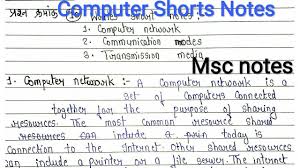 Computer Shorts Notes
प्रश्न क्रमांक Write short notes :-
1. Computer network
2. Communication modes
3. Transmission media
Msc notes
1. Computer network :- A computer network is a
set of computers connected
together for the purpose of sharing
resources. The most common resource shared
today is
connection to the Internet. Other shared resources
can include a printer or a file server. The internet